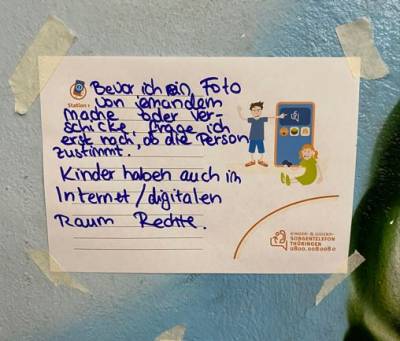 Bevor ich ein Foto
von jemandem
mache oder ver-
schicke, frage ich
erst nach, ob die Person
zustimmt.
Station 1
Kinder haben auch im
Internet/digitalen
Raum Rechte.
KINDER- & JUGEND-
SORGENTELEFON
THÜRINGEN
0800.008 008 0